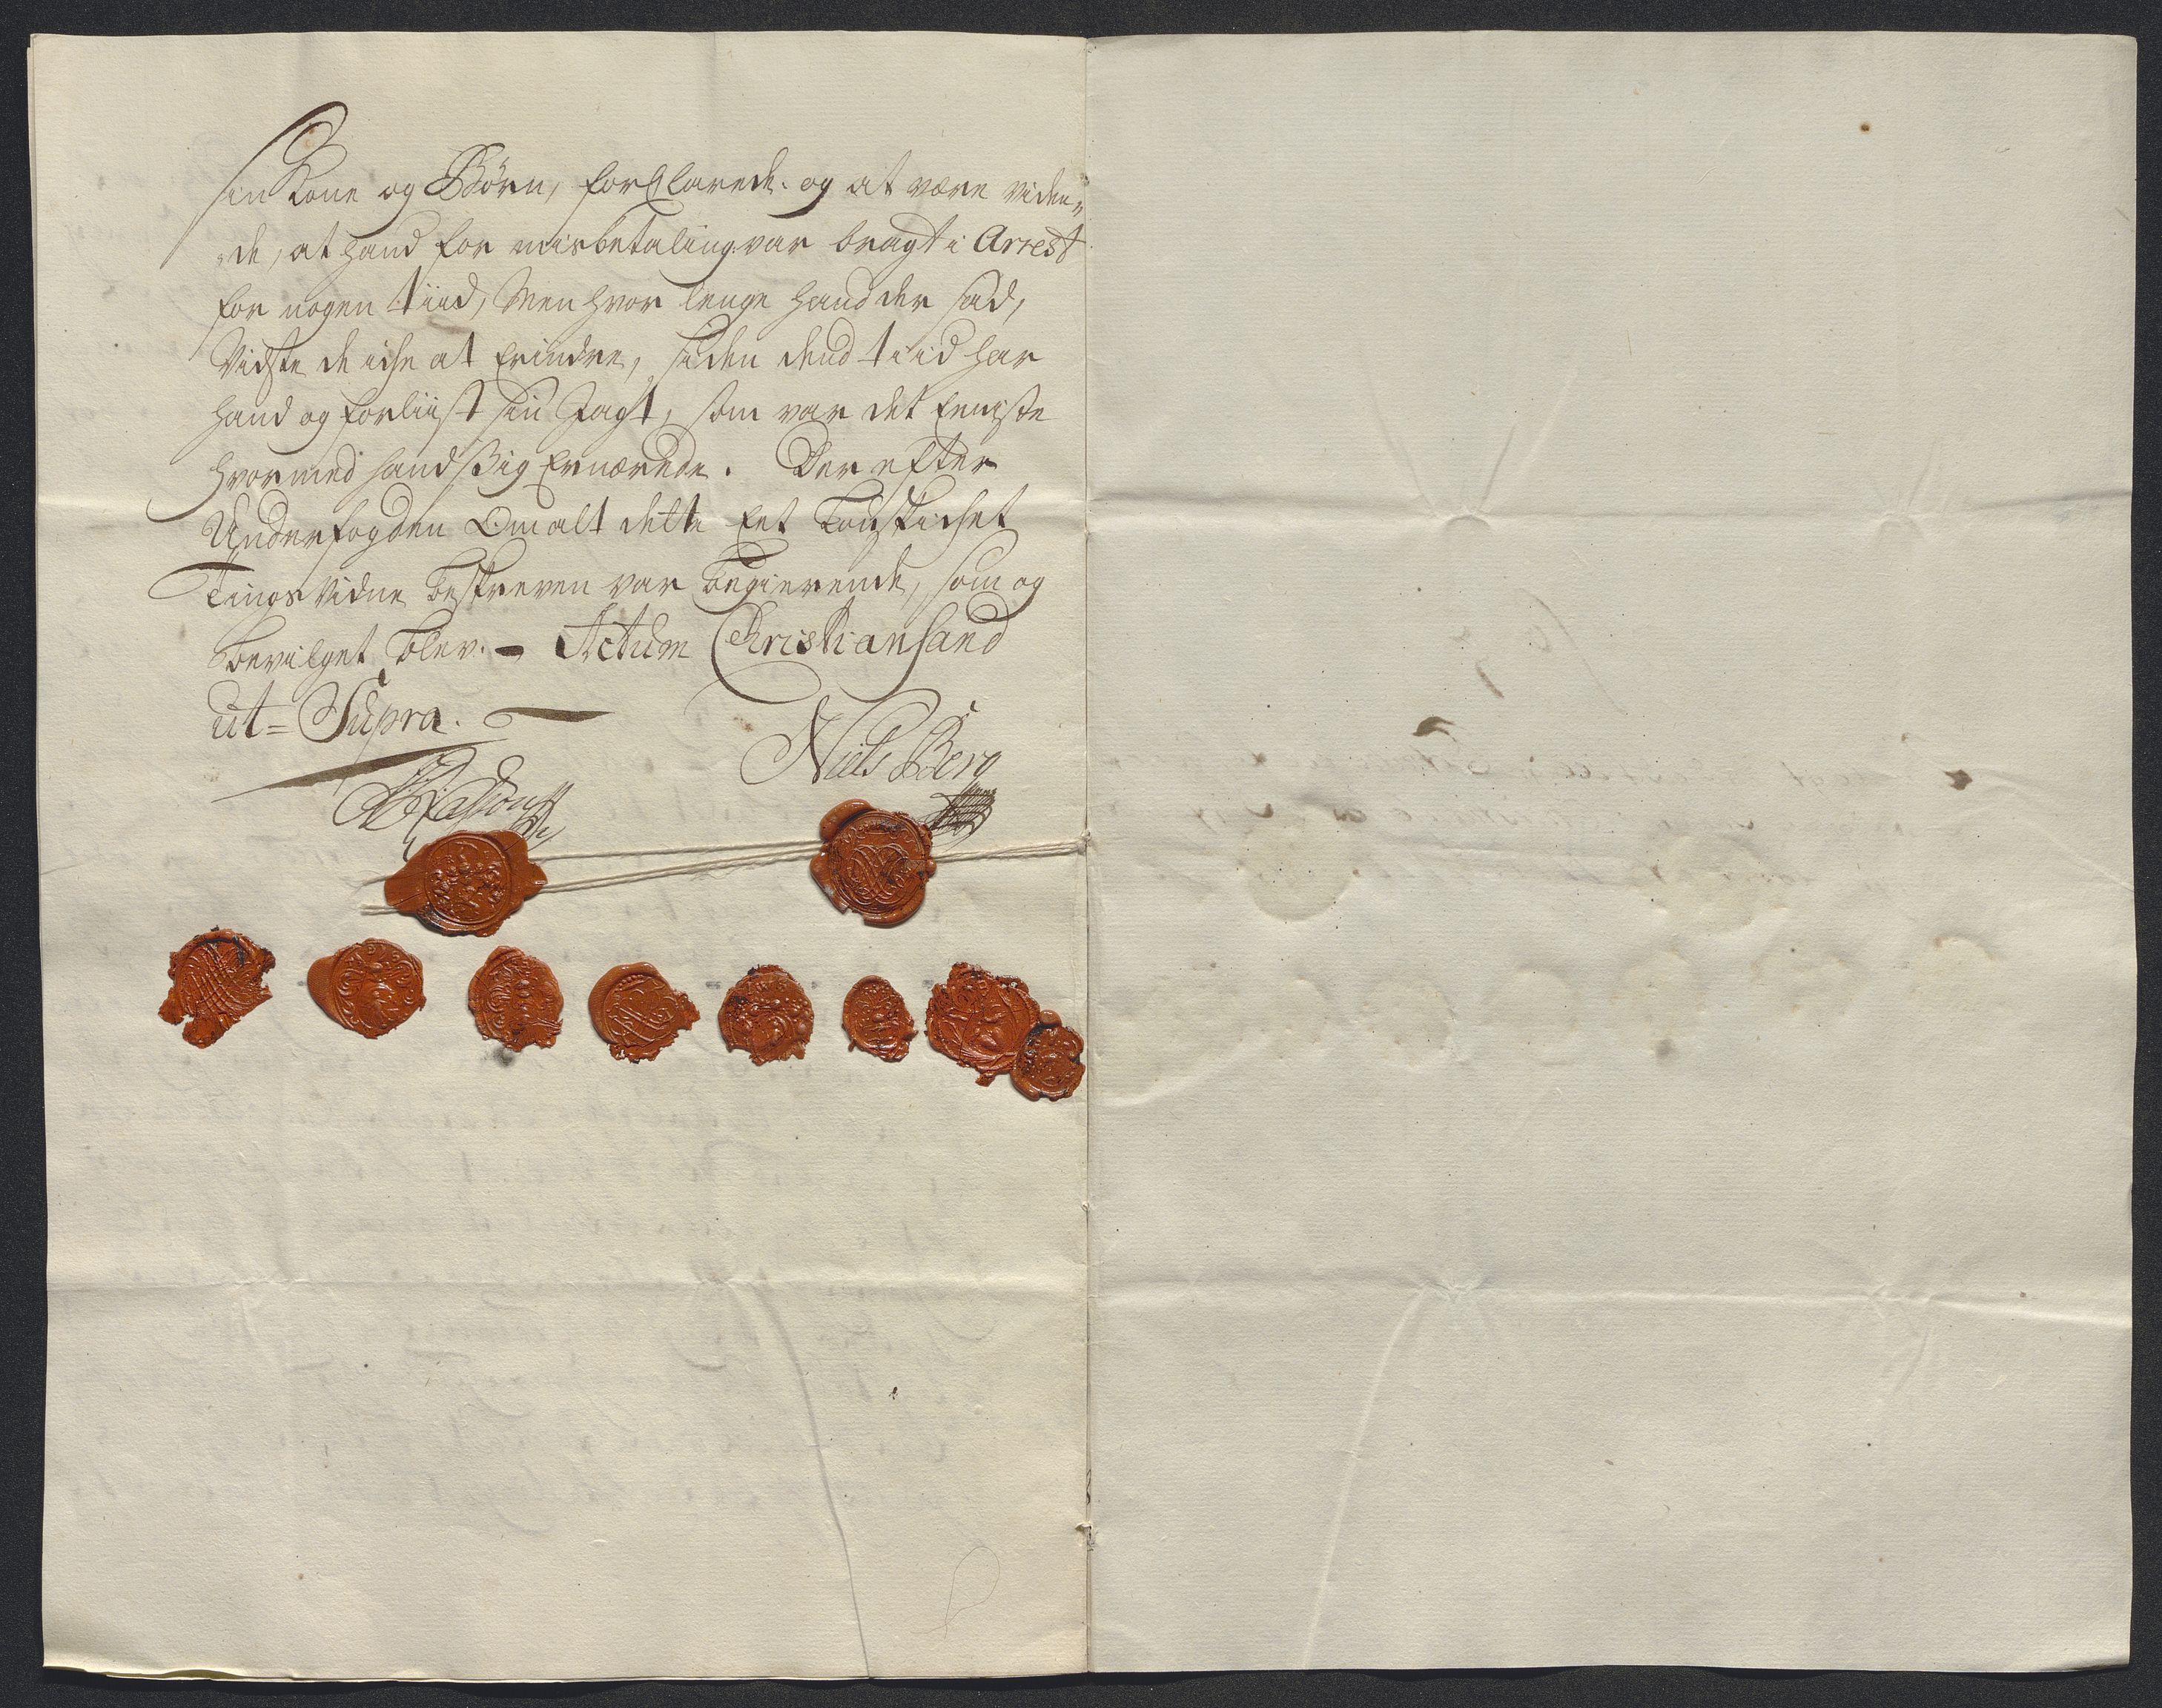 sin Kone og Børn, forklarede og at være viden„
„de, at hand for misbetaling var bragt i Arrest
for nogen tiid, Men hvor lenge hand der sad,
Vidste de iche at Erindre, siden dend tiid har
hand og forliist sin Jagt, som var det Eeniste
hvormed hand sig Ernærede. Der efter
Underfogden Om alt dette Eet Lougskichet
Tings Vidne beskreven var begierende, som og
bevilget blev. - Actum Christiansand
ut= Supra.
Niels Berg